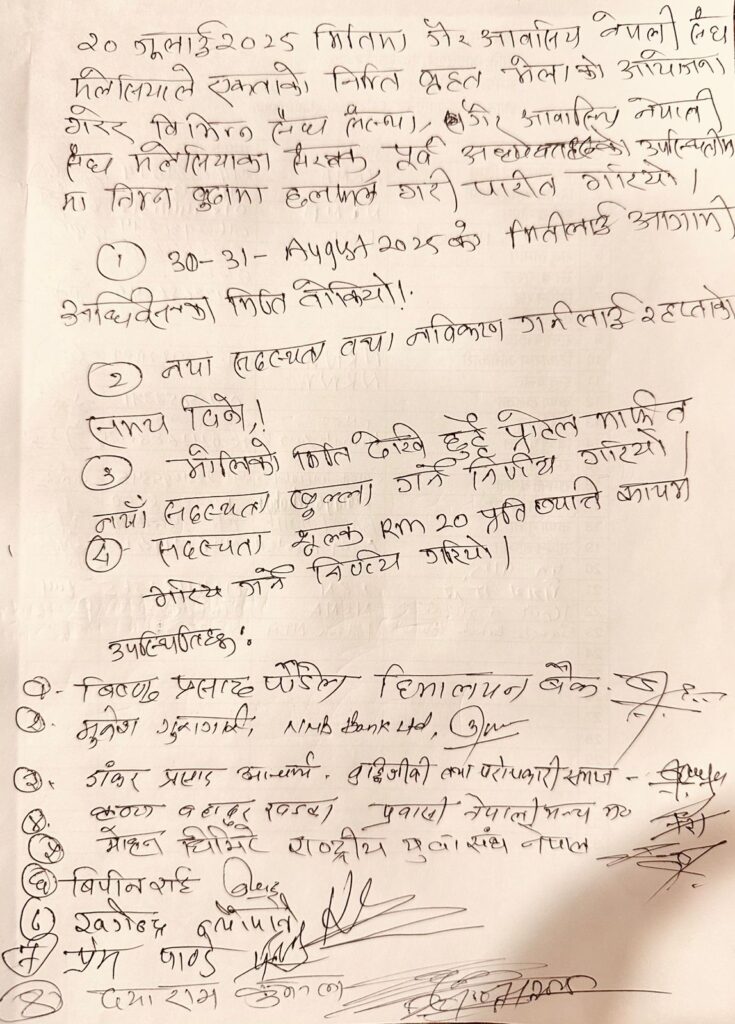 २० जूलाई २०२५ मितिमा गैर आवासिय नेपाली संघ
मलेसियाले एकताको निम्ति वृहत भेलाको आयोजना
गरेर विभिन्न संघ संस्था, गैर आवासिय नेपाली
संघ मलेसियाका संरक्षक, पूर्व अध्यक्षहरुको उपस्थिती
मा निम्न बुदामा छलफल गरी पारीत गरियो।
① 30-31- August 2025 को मितीलाई आगामी
अधिवेशनका मिति तोकियो!.
② नया सदस्यता तथा नविकरण गर्नलाई २ हप्ताको
समय दिने,!
③ भोलिको मिति देखि छुट्टै पोर्टल मार्फत
नयाँ सदस्यता खुल्ला गर्ने निर्णय गरियो।
④ सदस्यता शूल्क RM 20 प्रति व्यक्ति कायम
गर्ने निर्णय गरियो।
उपस्थितिहरु:
१- विष्णु प्रसाद पौडेल हिमालयन बैंक.
२. मुकेश NMB Bank Ltd,
३. शंकर प्रसाद आचार्य. बुद्धिजीवी तथा परोपकारी समाज -
४. बहादुर खड्का प्रवासी नेपाली मञ्च
५ मोहन घिमिरे राष्ट्रीय युवा संघ नेपाल
६ बिपीन राई
८ खगेन्द्र
७ प्रेम पाण्डे
8 दयाराम